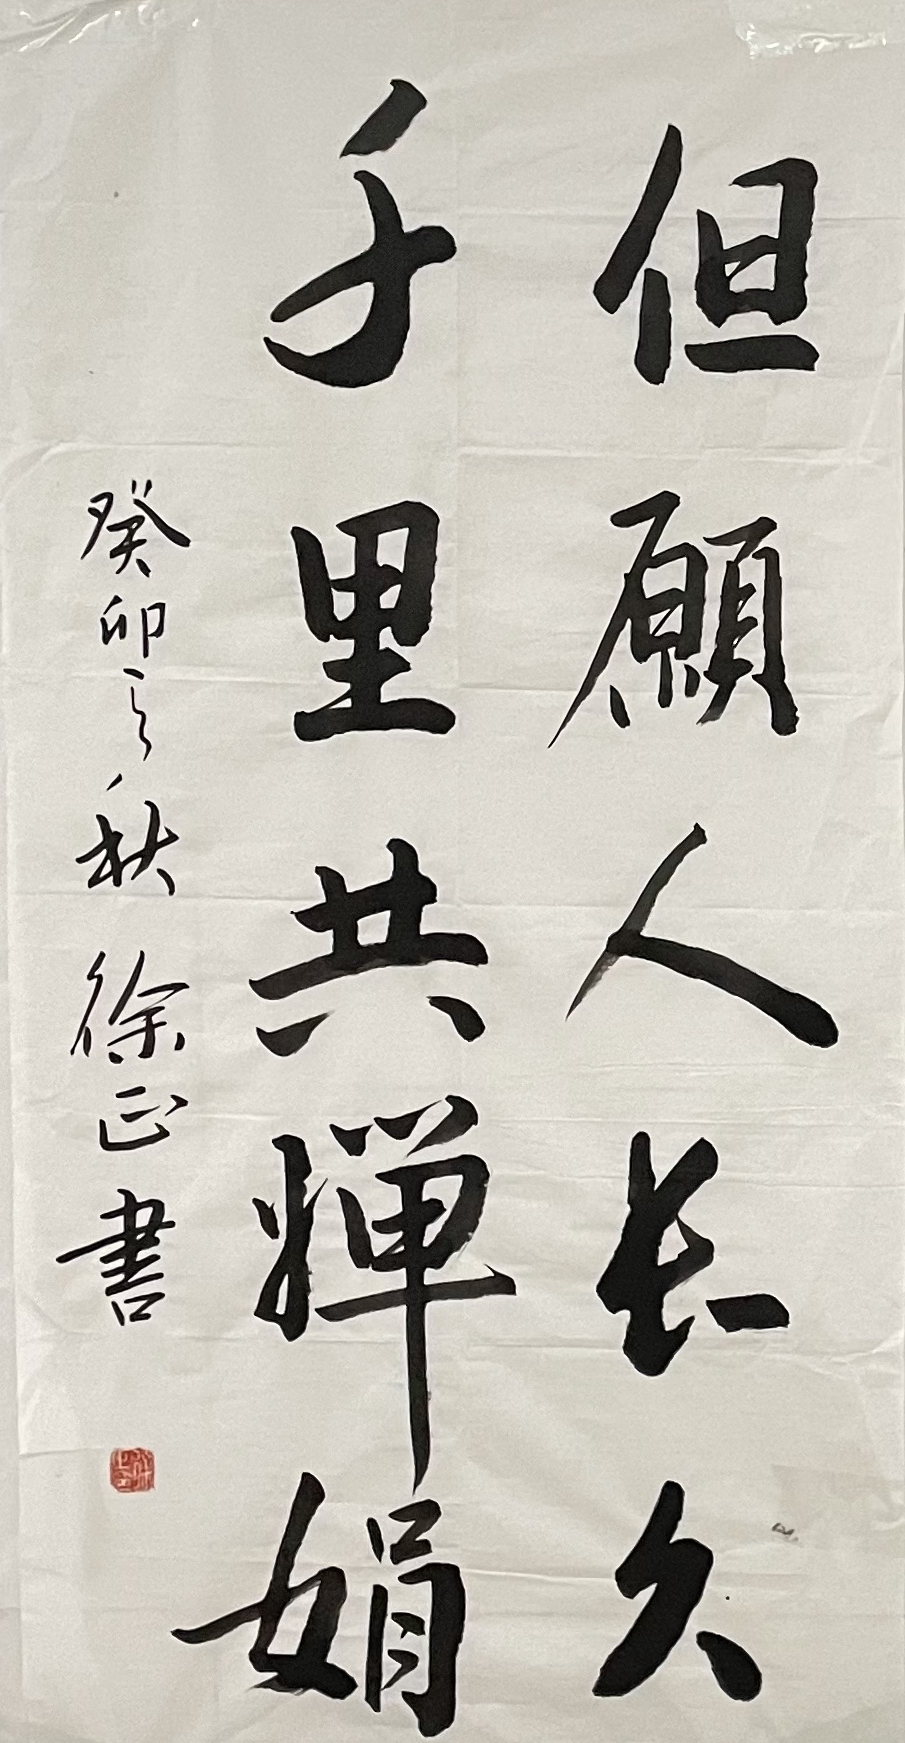 但願人长久
千里共嬋娟
癸卯之秋 徐正書